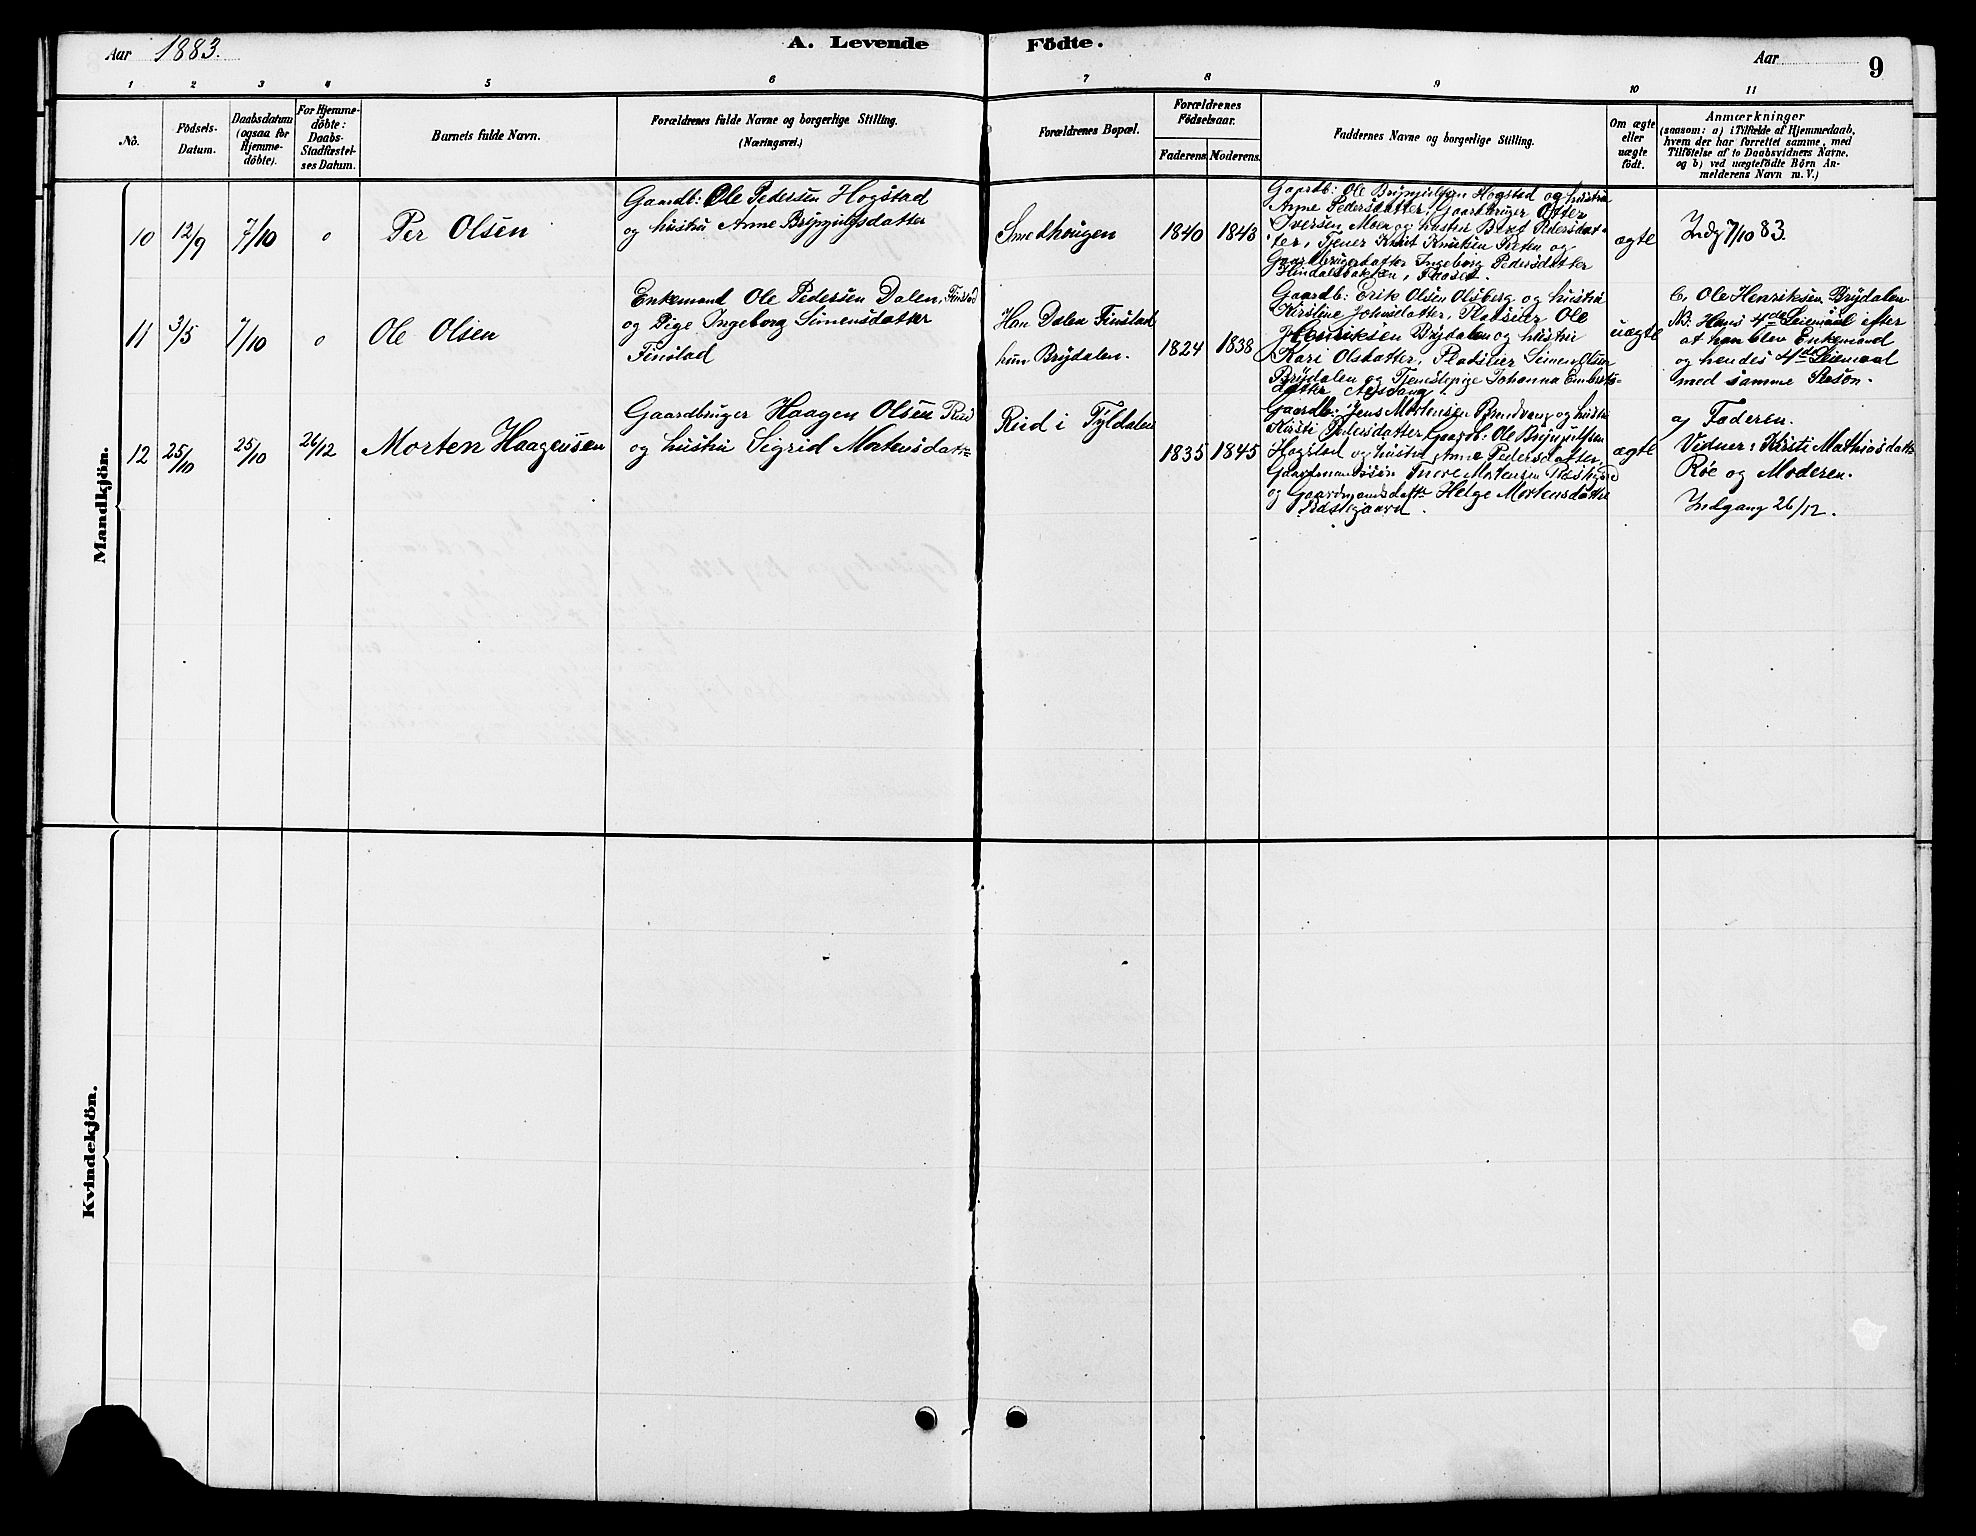 Aar 1883.
A. Levende Födte.
Aar
9
1 2 3 4 5 6 7 8 9 10 11
No.
Födsels-
Datum.
Daabsdatum
(ogsaa for
Hjemme-
döbte).
For Hjemme-
döbte:
Daabs-
Stadfæstel-
ses Datum.
Barnets fulde Navn.
Forældrenes fulde Navne og borgerlige Stilling.
(Næringsvei.)
Forældrenes Bopæl.
Forældrenes
Födselsaar.
Faderens. Moderens.
Faddernes Navne og borgerlige Stilling.
Om ægte
eller
uægte
født.
Anmærkninger
(saasom: a) i Tilfælde af Hjemmedaab,
hvem der har forrettet samme, med
Tilföielse af to Daabsvidners Navne.
og b) ved uægtefödte Börn An-
melderens Navn m. V.)
Mandkjön.
10 12/9 7/10 0 Per Olsen
Gaardb: Ole Pedersen Hogstad
og hustru Anne Brynjulfsdatter
Smedhougen
1840 1843
Gaardb: Ole Brynjulfsen Hogstad og hustru
Anne Pedersdatter, Gaardbruger
Iversen Moen og hustru Berit Pedersdat-
ter, Tjener Knut Knutsen og
Gaardbrugerdatter Ingeborg Pedersdatter
ægte
Indg 7/10 83.
11 3/5 7/10 0 Ole Olsen
Enkemand Ole Pedersen Dalen, Finstad
og Pige Ingeborg Simensdatter
Finstad
Han Dalen Finstad
hun Brydalen.
1824 1838
Gaardb: Erik Olsen Olsberg og hustru
Kirstine Johnsdatter, Pladseier Ole
Henriksen Brydalen og hustru
Kari Olsdatter, Pladseier Simen Olsen
Brydalen og Tjenestepige Johanna Emberts-
datter
uægte
b, Ole Henriksen Brydalen
NB. Hans 4de Leiemaal efter
at han blev Enkemand
og hendes 4de Leiemaal
med samme Person.
12 25/10 25/10 26/12 Morten Haagensen
Gaardbruger Haagen Olsen Rud
og hustru Sigrid Mortensdatter
Rud i Tyldalen
1835 1845
Gaardb: Jens Mortensen Brendvang og hustru
Kirsti Pedersdatter, Gaardb: Ole Brynjulfsen
Hogstad og hustru Anne Pedersdatter,
Gaardmandssön Tore Mortensen
og Gaardmandsdatter Helge Mortensdatter
ægte
a, Faderen.
Vidner: Kirsti Mathiasdatter
Røe og Moderen.
Indgang 26/12.
Kvindekjön.